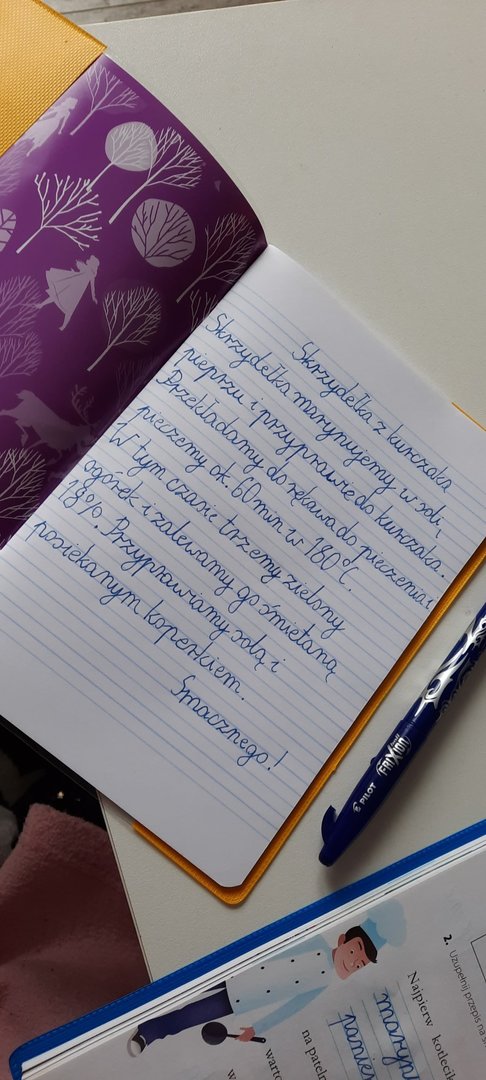 Skrzydełka z kurczaka
Skrzydełka marynujemy w soli,
pieprzu i przyprawie do kurczaka.
Przekładamy do rękawa do pieczenia i
pieczemy ok. 60 min w 180°C.
W tym czasie trzemy zielony
ogórek i zalewamy go śmietaną
18%. Przyprawiamy solą i
posiekanym koperkiem.
Smacznego!
PILOT
FRIXION
2. Uzupełnij przepis na
Najpierw kotleci
maryn
panie
na patel
warto